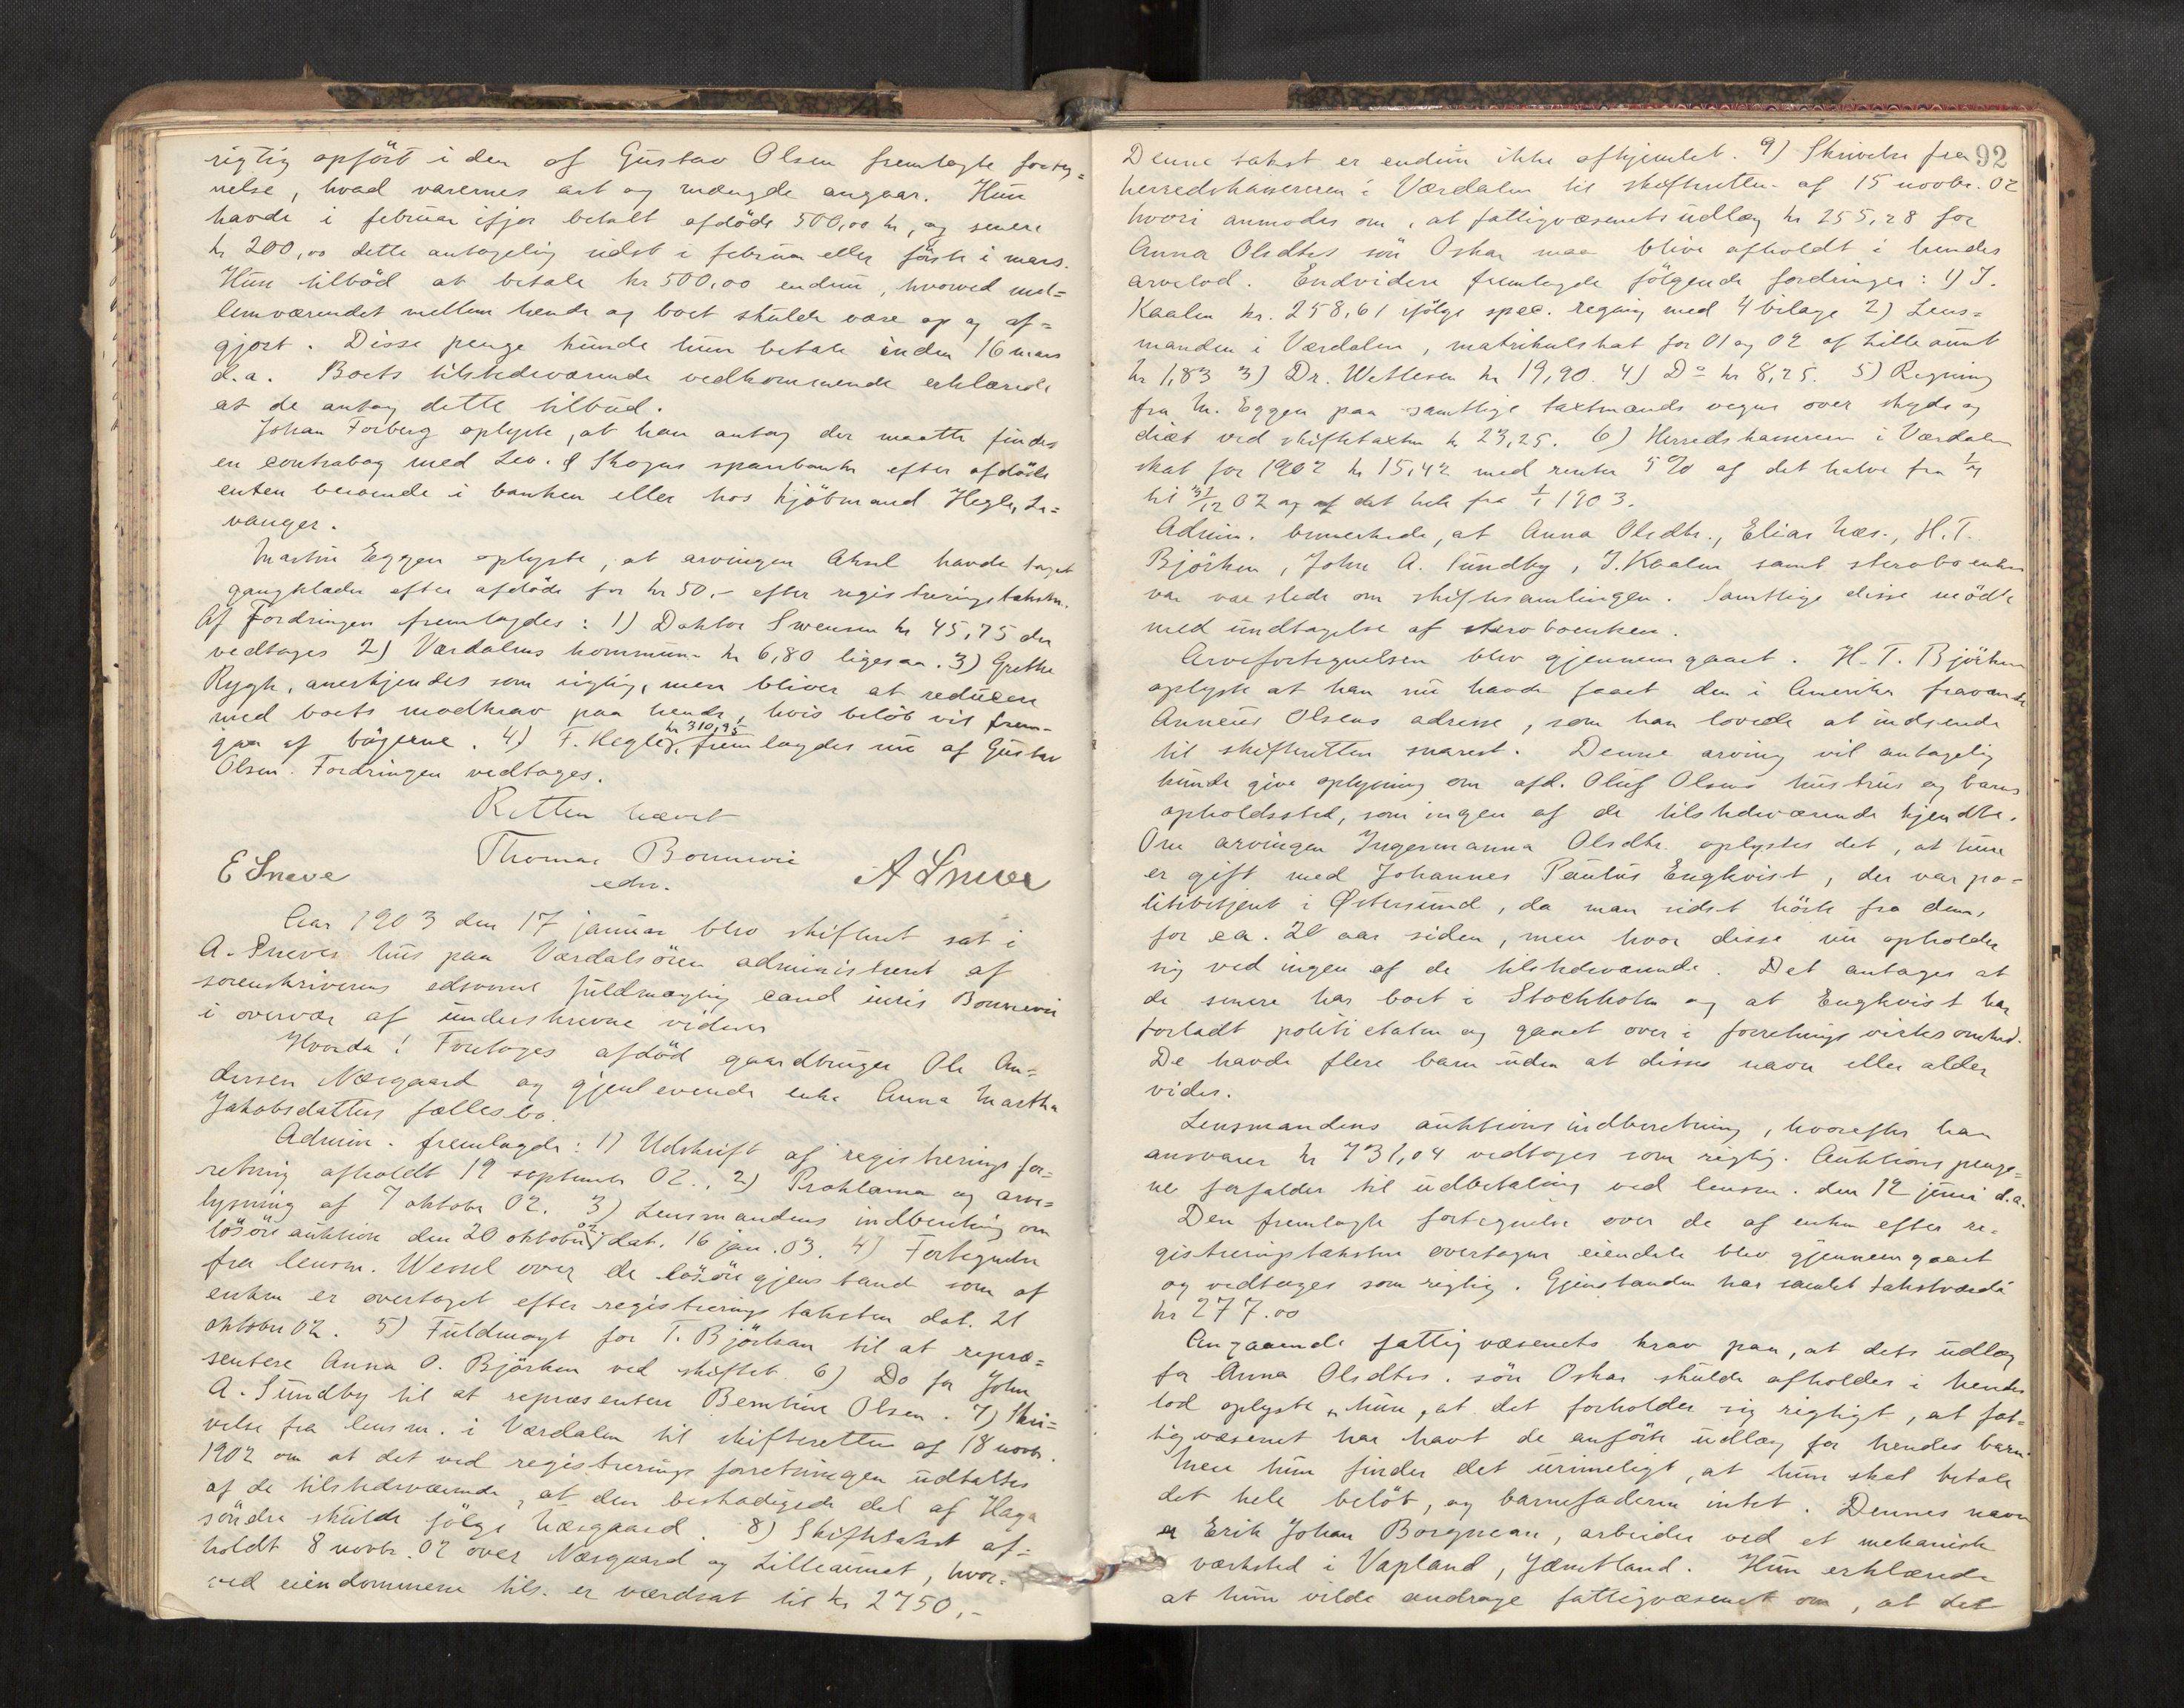 rigtig opført i den af Gustav Olsen fremlagte forteg=
nelse, hvad varernes art og mængde angaar. Hun
havde i februar ifjor betalt afdöde 500,00 kr, og senere
kr 200,00 dette antagelig sidst i februar eller först i mars.
Hun tilböd at betale kr 500,00 endnu, hvorved mel=
lemværendet mellem hende og boet skulde være op og af=
gjort. Disse penge kunde hun betale inden 16 mars
d.a. Boets tilstedeværende vedkommende erklærede
at de antog dette tilbud.
Johan Forberg oplyste, at han antog der maatte findes
en contrabog med Lev. & Skogns sparebanke efter afdöde
enten beroende i banken eller hos kjöbmand Hegle, Le=
vanger.
Martin Eggen oplyste, at arvingen Aksel havde taget
gangklæder efter afdöde for kr 50.- efter registreringstaksten.
Af Fordringer fremlagdes: 1) Doktor Svensen kr 45,75 der
vedtages 2) Værdalens kommune kr 6,80 ligesaa. 3) Grethe
Rygh, anerkjendes som rigtig, men bliver at reducere
med boets modkrav paa hende, hvis belöb vil frem-
gaa af bøgerne. 4) F. Hegle, kr 310,95 fremlagdes nu af Gustav
Olsen. Fordringen vedtages.
Retten hævet
Thomas Bonnevie
edsv.
E Sneve
A Sneve
Aar 1903 den 17 januar blev skifteret sat i
A. Sneves hus paa Værdalsören administreret af
sorenskriverens edsvorne fuldmægtig cand juris Bonnevie
i overvær af underskrevne vidner
Hvorda! Foretages afdöd gaardbruger Ole An=
dersen Næsgaard og gjenlevende enke Anna Martha
Jakobsdatters fællesbo.
Admin. fremlagde: 1) Udskrift af registreringsfor-
retning afholdt 19 september 02.. 2) Proklama og arve=
lysning af 7 oktober 02. 3) Lensmandens indberetning om
lösöre auktion den 20 oktober 02 dat. 16 jan. 03. 4) Fortegnelse
fra lensm. Wessel over de lösöregjenstand som af
enken er overtaget efter registreringstaksten dat. 21
oktober 02. 5) Fuldmagt for T. Björken til at repræ=
sentere Anna O. Björken ved skiftet. 6) Do for John
A. Sundby til at repræsentere Berntine Olsen. 7) Skri=
velse fra lensm. i Værdalen til skifteretten af 18 novbr.
1902 om at det ved registreringsforretningen udtaltes
af de tilstedeværende, at den beskadigede del af Haga
söndre skulde fölge Næsgaard. 8) Skiftetakst af=
holdt 8 novbr. 02 over Næsgaard og Lilleaunet, hvor=
ved eiendommene tils. er værdsat til kr 2750,-
92
Denne takst er endnu ikke afhjemlet. 9) Skrivelse fra
herredskasereren i Værdalen til skifteretten af 15 novbr. 02
hvori anmodes om, at fattigvæsenets udlæg kr 255,28 for
Anna Olsdtrs sön Oskar maa blive afholdt i hendes
arvelod. Endvidere fremlagde fölgende fordringer: 1) J.
Kaalen kr. 258,61 ifölge spec. regning med 4 bilage 2) Lens=
manden i Værdalen, matrikulskat for 01 og 02 af Lilleaunet
kr 1,83 3) Dr. Wetlesen kr 19,90. 4) Do kr 8,25. 5) Regning
fra M. Eggen paa samtlige taxtmænds vegne over skyds og
diæt ved skiftetaxten kr 23,25. 6) Herredskasereren i Værdalen
skat for 1902 kr 15,42 med renter 5% af det halve fra
til 31/12 02 og af det hele fra 1/1 1903.
Admin. bemerkede, at Anna Olsdtr., Elias Næs., H. T.
Björken, John A. Sundby, J. Kaalen samt sterboenken
var varslede om skiftesamlingen. Samtlige disse mödte
med undtagelse af sterboenken.
Arvefortegnelsen blev gjennemgaaet. H. T. Björken
oplyste at han nu havde faaet den i Amerika fraværende
Anneus Olsens adresse, som han lovede at indsende
til skifteretten snarest. Denne arving vil antagelig
kunde give oplysning om afd. Oluf Olsens hustrus og barns
opholdssted, som ingen af de tilstedeværende kjendte.
Om arvingen Ingermanna Olsdtr. oplystes det, at hun
er gift med Johannes Paulus Engkvist, der var po-
litibetjent i Östersund, da man sidst hörte fra dem,
for ca. 20 aar siden, men hvor disse nu opholder
sig ved ingen af de tilstedeværende. Det antages at
de senere har boet i Stockholm og at Engkvist har
forladt politi etaten og gaaet over i forretningsvirksomhed.
De havde flere barn uden at disses navn eller alder
vides.
Lensmandens auktionsindberetning, hvorefter han
ansvarer kr 731,04 vedtages som rigtig. Auktionspenge=
ne forfalder til udbetaling ved lensm. den 12 juni d.a.
Den fremlagte fortegnelse over de af enken efter re-
gistreringstaksten overtagne eiendele blev gjennemgaaet
og vedtages som rigtig. Gjenstanden har samlet takstværdi
kr 277.00
Angaaende fattigvæsenets krav paa, at dets udlæg
for Anna Olsdtrs. sön Oskar skulde afholdes i hendes
lod oplyste hun, at det forholder sig rigtigt, at fat=
tigvæsenet har havt de anförte udlæg for hendes barn.
Men hun finder det urimeligt, at hun skal betale
det hele belöb, og barnefaderen intet. Dennes navn
er Erik Johan Borgman, arbeider ved et mekanisk
værksted i Vapland, Jæmtland. Hun erklærede
at hun vilde andrage fattigvæsenet om, at det